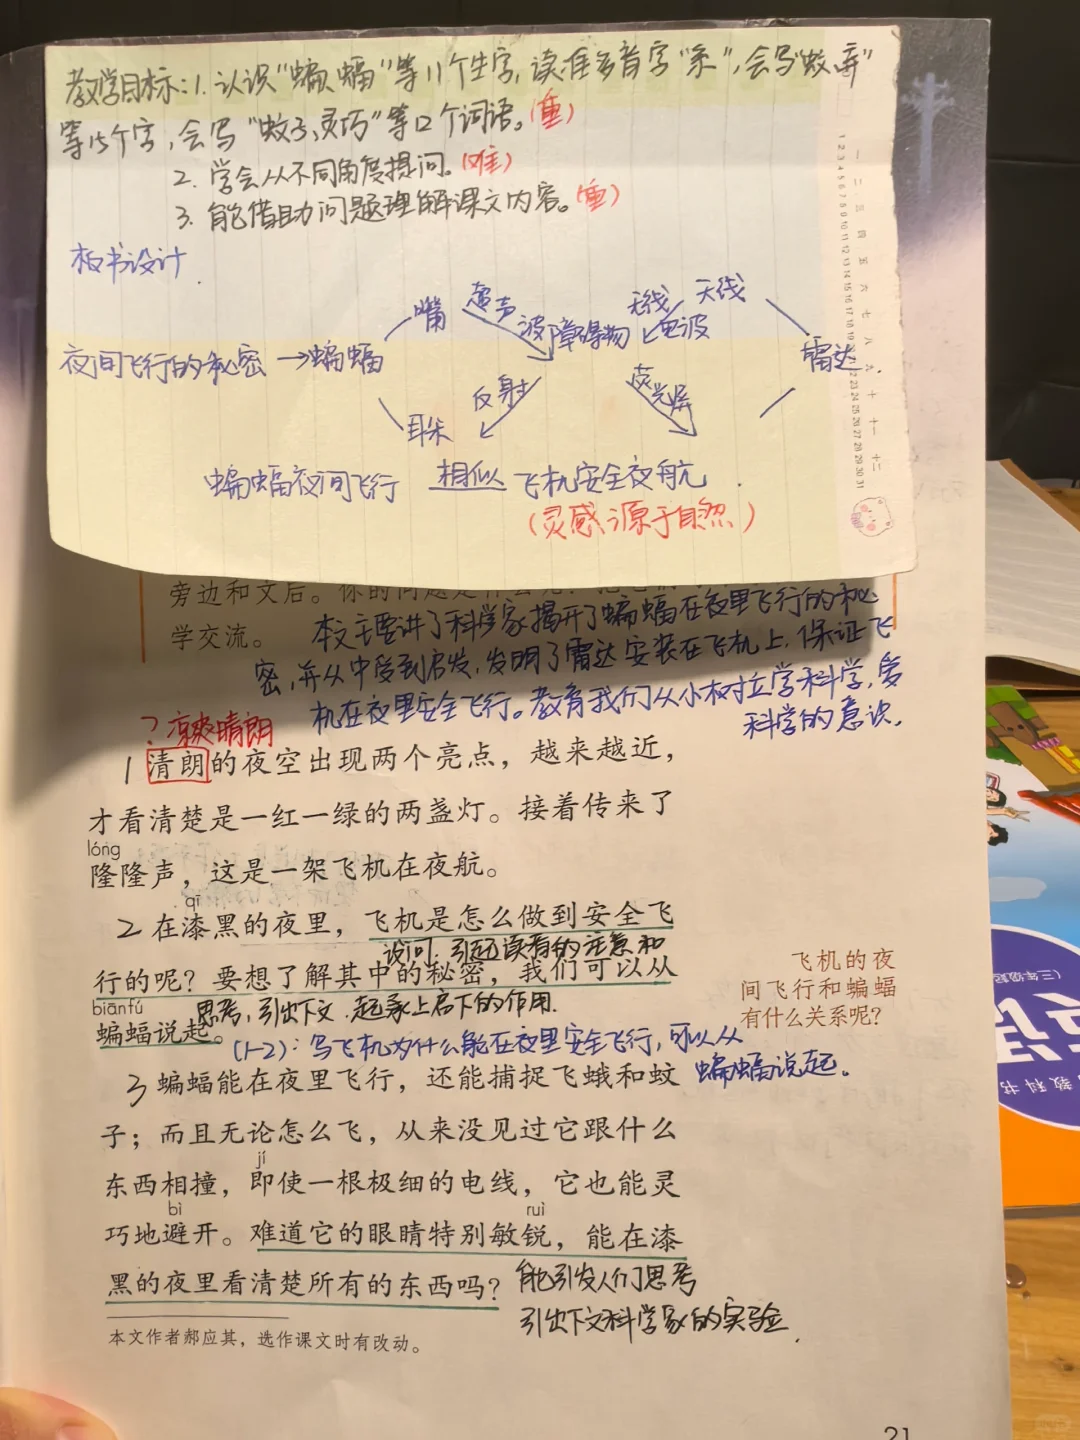 教学目标:1.认识“蝙、蝠”等11个生字,读准多音字“系”,会写“蚊、弃”
等15个字,会写“蚊子、灵巧”等12个词语。(重)
2.学会从不同角度提问。(难)
3.能借助问题理解课文内容。(重)
板书设计
嘴 超声波 障碍物 无线电波 天线
夜间飞行的秘密→蝙蝠 雷达
耳朵 反射 荧光屏
蝙蝠夜间飞行 相似 飞机安全夜航
(灵感源于自然)
一 二 三 四 五 六 七 八 九 十 十一 十二
1 2 3 4 5 6 7 8 9 10 11 12 13 14 15 16 17 18 19 20 21 22 23 24 25 26 27 28 29 30 31
旁边和文后。你的问题是什么呢?
学交流。
本文主要讲了科学家揭开了蝙蝠在夜里飞行的秘
密,并从中受到启发,发明了雷达安装在飞机上,保证飞
机在夜里安全飞行。教育我们从小树立学科学,爱
科学的意识。
?凉爽晴朗
1 清朗的夜空出现两个亮点,越来越近,
才看清楚是一红一绿的两盏灯。接着传来了
lóng
隆隆声,这是一架飞机在夜航。
qī
2 在漆黑的夜里,飞机是怎么做到安全飞
设问,引起读者的注意和
行的呢?要想了解其中的秘密,我们可以从
biānfú
思考,引出下文.起承上启下的作用.
蝙蝠说起。
飞机的夜
间飞行和蝙蝠
有什么关系呢?
(1-2):写飞机为什么能在夜里安全飞行,可以从
蝙蝠说起。
3 蝙蝠能在夜里飞行,还能捕捉飞蛾和蚊
子;而且无论怎么飞,从来没见过它跟什么
jí
东西相撞,即使一根极细的电线,它也能灵
bì ruì
巧地避开。难道它的眼睛特别敏锐,能在漆
黑的夜里看清楚所有的东西吗?
能引发人们思考
引出下文科学家的实验.
本文作者郝应其,选作课文时有改动。
21
(三年级起
教科书